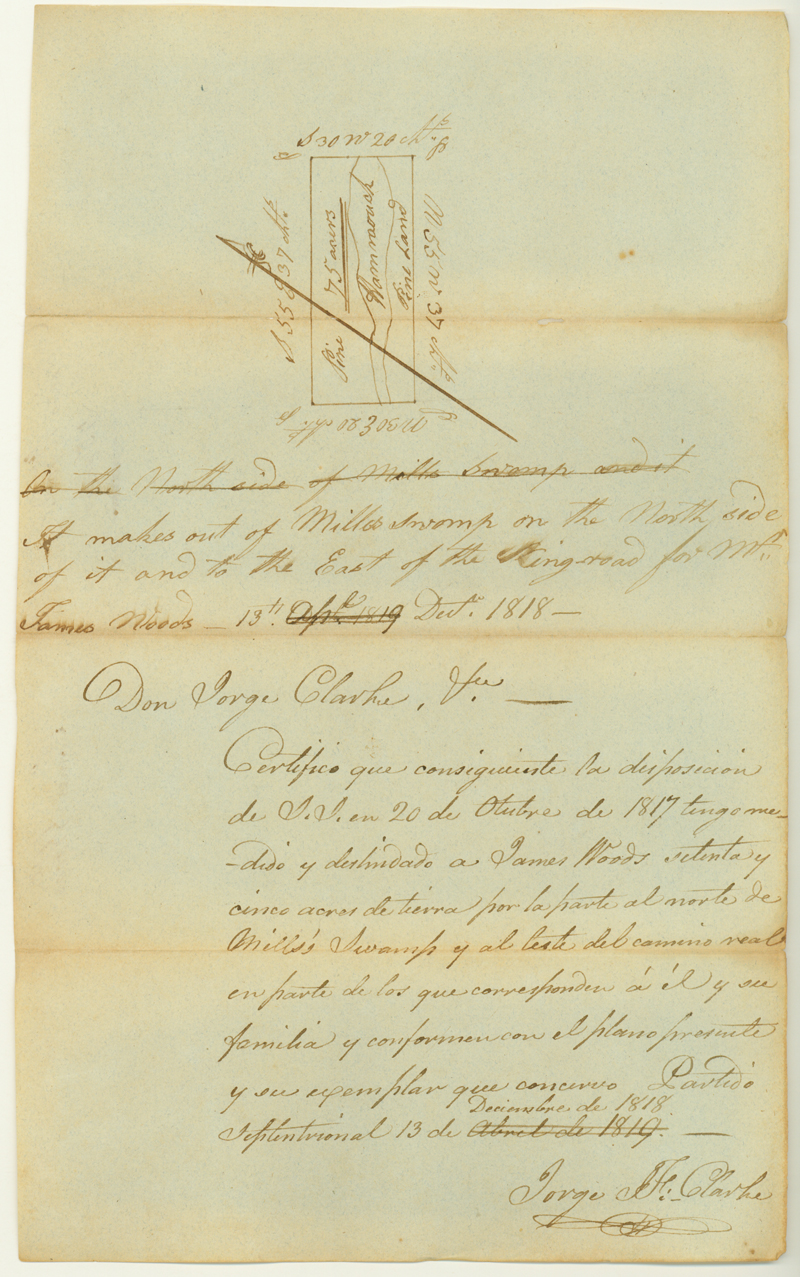 S 30 W 20 chs
S 55 E 37 chs
Pine
75 acres
Hammock
Pine Land
N 55 W 37 chs
N 30 E 20 chs
On the North side of Mills Swamp and it
It makes out of Mills Swamp on the North side
of it and to the East of the King-road for Mr.
James Woods — 13th. Apl. 1819 Decr. 1818 —
Don Jorge Clarke, &ca —
Certifico que consiguiente la disposicion
de S.S. en 20 de Otubre de 1817 tengo me-
-dido y deslindado a James Woods setenta y
cinco acres de tierra por la parte al norte de
Mills's Swamp y al leste del camino real
en parte de los que corresponden á él y su
familia y conformen con el plano presente
y su exemplar que concervo Partido
Deciembre de 1818
Septentrional 13 de Abril de 1819. —
Jorge J. F. Clarke